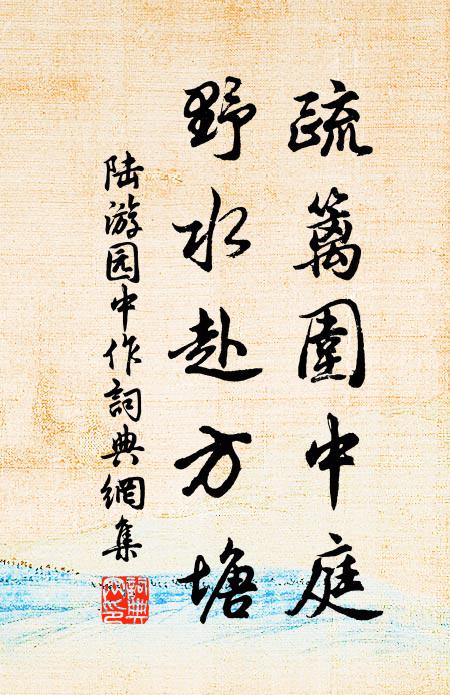 疏籬圍中庭
野水赴方塘
陆游园中作詞典網集